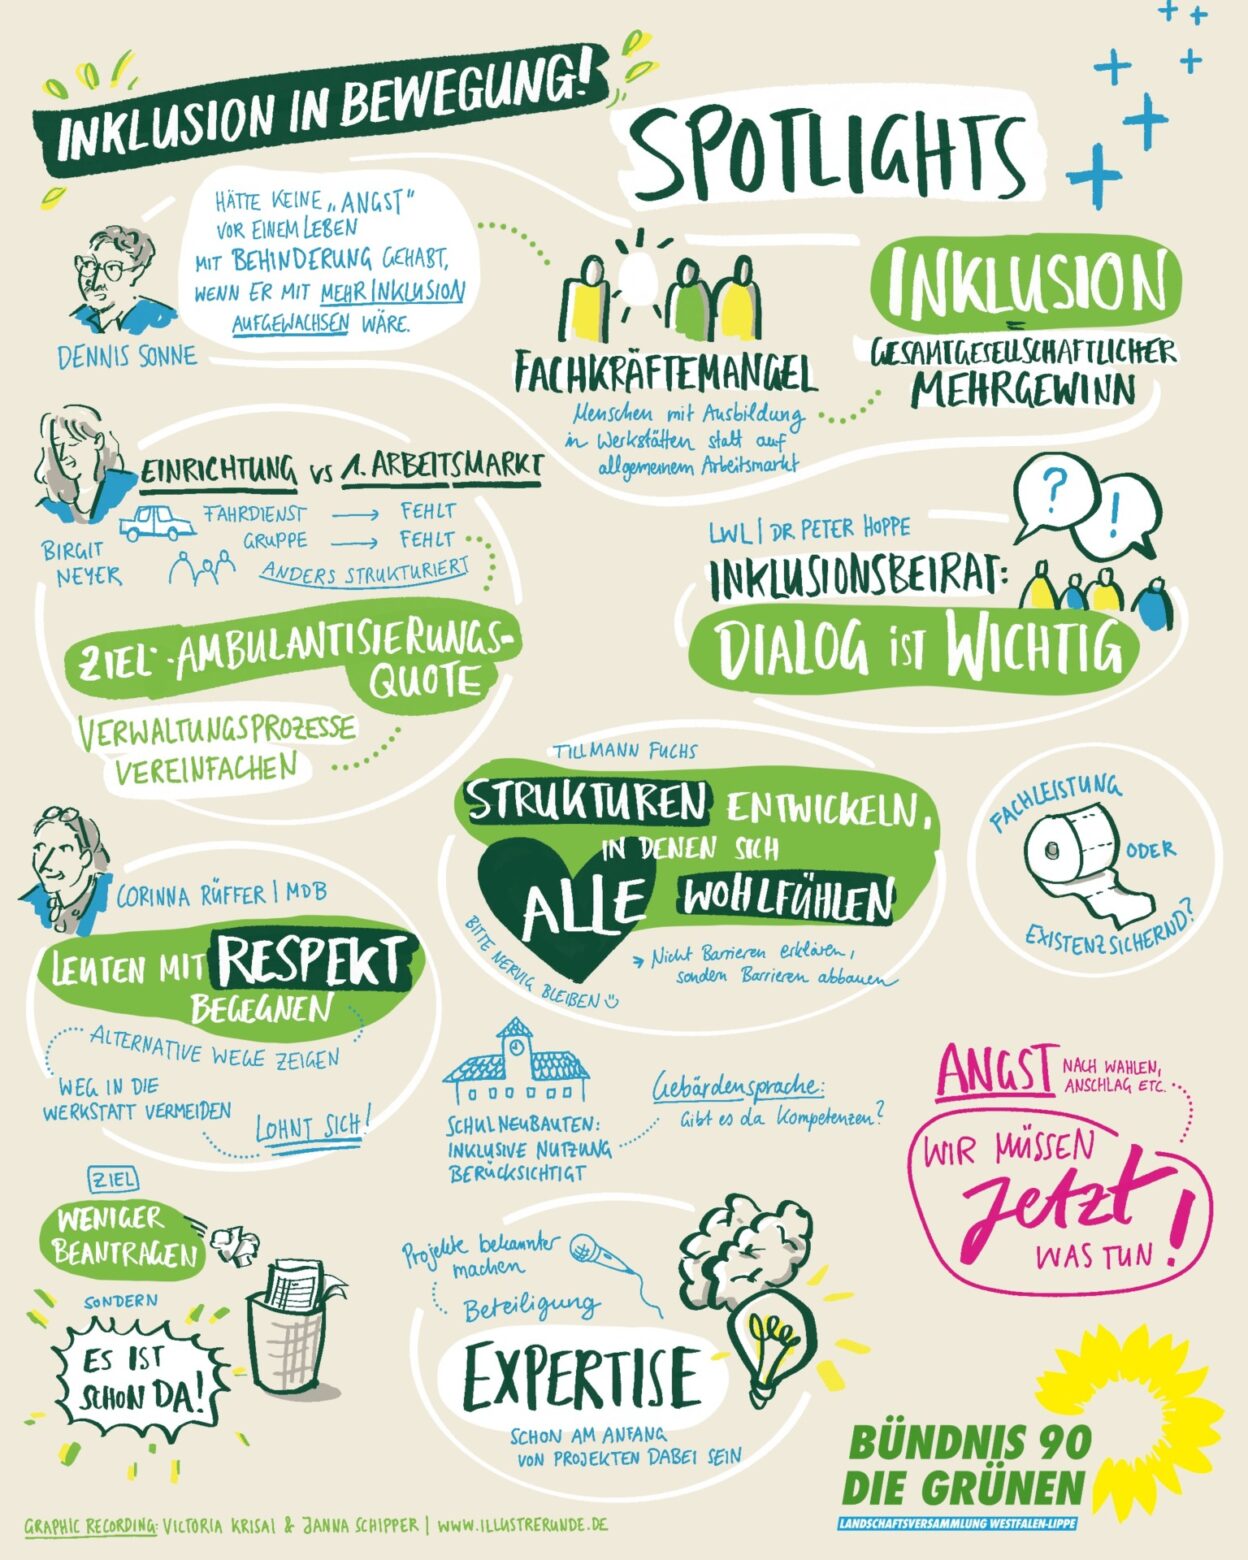 INKLUSION IN BEWEGUNG!
SPOTLIGHTS
HÄTTE KEINE „ANGST“
VOR EINEM LEBEN
MIT BEHINDERUNG GEHABT,
WENN ER MIT MEHR INKLUSION
AUFGEWACHSEN WÄRE.
DENNIS SONNE
FACHKRÄFTEMANGEL
Menschen mit Ausbildung
in Werkstätten statt auf
allgemeinem Arbeitsmarkt
INKLUSION
=
GESAMTGESELLSCHAFTLICHER
MEHRGEWINN
EINRICHTUNG VS 1. ARBEITSMARKT
FAHRDIENST → FEHLT
GRUPPE → FEHLT
ANDERS STRUKTURIERT
BIRGIT
NEYER
ZIEL: AMBULANTISIERUNGS-
QUOTE
VERWALTUNGSPROZESSE
VEREINFACHEN
? !
LWL | DR PETER HOPPE
INKLUSIONSBEIRAT:
DIALOG IST WICHTIG
TILLMANN FUCHS
STRUKTUREN ENTWICKELN,
IN DENEN SICH
ALLE WOHLFÜHLEN
BITTE NERVIG BLEIBEN
→ Nicht Barrieren erklären,
sondern Barrieren abbauen
FACHLEISTUNG
ODER
EXISTENZSICHERND?
CORINNA RÜFFER | MDB
LEUTEN MIT RESPEKT
BEGEGNEN
ALTERNATIVE WEGE ZEIGEN
WEG IN DIE
WERKSTATT VERMEIDEN
LOHNT SICH!
SCHULNEUBAUTEN:
INKLUSIVE NUTZUNG
BERÜCKSICHTIGT
Gebärdensprache:
Gibt es da Kompetenzen?
ANGST NACH WAHLEN,
ANSCHLAG ETC.
WIR MÜSSEN
Jetzt
WAS TUN!
ZIEL
WENIGER
BEANTRAGEN
SONDERN
ES IST
SCHON DA!
Projekte bekannter
machen
Beteiligung
EXPERTISE
SCHON AM ANFANG
VON PROJEKTEN DABEI SEIN
BÜNDNIS 90
DIE GRÜNEN
LANDSCHAFTSVERSAMMLUNG WESTFALEN-LIPPE
GRAPHIC RECORDING: VICTORIA KRISAI & JANNA SCHIPPER | WWW.ILLUSTRERUNDE.DE